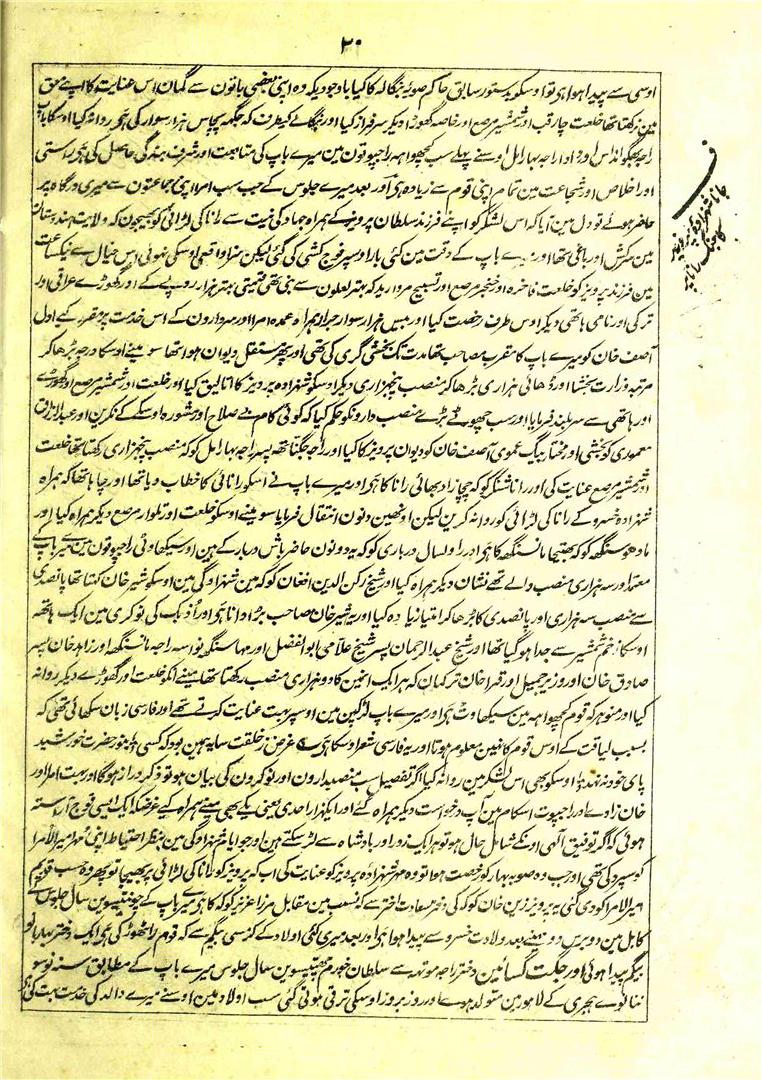 ۲۰
اوسی سے پیدا ہوا ہی تو اوسکو بدستور سابق حاکم صوبۂ بنگالہ کا کیا باوجودیکہ وہ اپنی بعضی باتون سے گمان اس عنایت کا اپنے حق
مین نرکھتا تھا خلعت چارقب اور شمشیر مرصع اور خاصہ گھوڑا دیکر سرفراز کیا اور بنگالے کیطرف کہ جگہہ پچاس ہزار سوار کی ہی روانہ کیا اوسکا باپ
راجہ بھگوانداس اور دادا راجہ بہارامل اوسنے پہلے سب کچھواہہ راجپوتون مین میرے باپ کی متابعت اور شرف بندگی حاصل کی ہی راستی
اور اخلاص اور شجاعت مین تمام اپنی قوم سے زیادہ ہی اور بعد میرے جلوس کے جب سب امرا اپنی جماعتون سے میری درگاہ پر
حاضر ہوئے تو دل مین آیا کہ اس لشکر کو اپنے فرزند سلطان پرویز کے ہمراہ جہاد کی نیت سے رانا کی لڑائی کو بھیجون کہ ولایت ہندوستان
مین سرکش اور باغی تھا اور میرے باپ کے وقت مین کئی بار اوسپر فوج کشی کی گئی لیکن سزا واقعی اوسکی نہوئی اس خیال سے نیک ساعت
مین فرزند پرویز کو خلعت فاخرہ اور خنجر مرصع اور تسبیح مروارید کہ بہتر لعلون سے بنی تھی قیمتی بہتر ہزار روپیے کے اور گھوڑے عراقی اور
ترکی اور نامی ہاتھی دیکر اوس طرف رخصت کیا اور بیس ہزار سوار جرار ہمراہ عمدہ امرا اور سردارون کے اس خدمت پر مقرر کیے اول
آصف خان کو میرے باپ کا مقرب مصاحب تھا مدت تک بخشی گری کی تھی اور پھر مستقل دیوان ہوا تھا سو مینے اوسکا درجہ بڑھا کر
مرتبہ وزارت بخشا اور ڈھائی ہزاری بڑھا کر منصب پنجہزاری دیکر اوسکو شہزادہ پرویز کا اتالیق کیا اور خلعت اور شمشیر مرصع اور گھوڑے
اور ہاتھی سے سربلند فرمایا اور سب چھوٹے بڑے منصب دارونکو حکم کیا کہ کوئی کام بے صلاح اور مشورہ اوسکے کے نکرین اور عبدالرزاق
معموری کو بخشی اور مختار بیگ عموی آصف خان کو دیوان پرویز کا کیا اور راجہ جگناتھ پسر راجہ بہارامل کو کہ منصب پنجہزاری رکھتا تھا خلعت
اور شمشیر مرصع عنایت کی اور رانا شنکر کو کہ چچازاد بھائی رانا کا ہی اور میرے باپ نے اسکو رانائی کا خطاب دیا تھا اور چاہا تھا کہ ہمراہ
شہزادہ خسرو کے رانا کی لڑائی کو روانہ کرین لیکن اونھین دنون انتقال فرمایا سو مینے اوسکو خلعت اور تلوار مرصع دیکر ہمراہ کیا اور
مادھوسنگھ کو کہ بھتیجا مانسنگھ کا ہی اور راول سال درباری کو کہ یہ دونون حاضر باش دربار کے ہین اور سیکھاوتی راجپوتون مین میرے باپ کے
معتمد اور سہ ہزاری منصب والے تھے نشان دیکر ہمراہ کیا اور شیخ رکن الدین افغان کو کہ مین شہزادگی مین اوسکو شیر خان کہتا تھا پانصدی
سے منصب سہ ہزاری اور پانصدی کا بڑھا کر امتیاز زیادہ کیا اور یہ شیر خان صاحب بڑا دانا ہی اور اوزبک کی نوکری مین ایک ہاتھ
اوسکا زخم شمشیر سے جدا ہو گیا تھا اور شیخ عبدالرحمان پسر شیخ علامی ابوالفضل اور مہاسنگھ نواسہ راجہ مانسنگھ اور زاہد خان پسر
صادق خان اور وزیر جمیل اور قراخان ترکمان کہ ہر ایک انمین کا دو ہزاری منصب رکھتا تھا مینے انکو خلعت اور گھوڑے دیکر روانہ
کیا اور منوہر کہ قوم کچھواہہ مین سیکھاوت ہی اور میرے باپ لڑکپن مین اوسپر بہت عنایت کرتے تھے اور فارسی زبان سکھائی تھی کہ
بسبب لیاقت کے اوس قوم کا نہین معلوم ہوتا اور یہ فارسی شعر اوسکا ہی ؎ غرض ز خلقت سایہ ہمین بود کہ کسی ٭ بنور حضرت خورشید
پای خود نہ نہد ٭ اوسکو بھی اس لشکر مین روانہ کیا اگر تفصیل سب منصبدارون اور نوکرون کی بیان ہو تو ذکر دراز ہوگا اور بہت امرا اور
خان زادے اور راجپوت اس کام مین آپ درخواست دیکر ہمراہ گئے اور ایکہزار احدی یعنی یکے بھی مینے ہمراہ کیے غرضکہ ایک ایسی فوج آراستہ
ہوئی کہ اگر توفیق الٰہی اونکے شامل حال ہو تو ہر ایک زور اور بادشاہ سے لڑ سکتے ہین اور جو ایام شہزادگی مین بنظر احتیاط اپنی مہر امیرالامرا
کو سپرد کی تھی اور جب وہ صوبہ بہار کو رخصت ہوا تو وہ مہر شہزادہ پرویز کو عنایت کی اب کہ پرویز کو رانا کی لڑائی پر بھیجا تو پھر وہ حسب قدیم
امیرالامرا کو دی گئی یہ پرویز زین خان کوکہ کی دختر سعادت اختر سے کہ نسب مین مقابل مرزا عزیز کوکہ کا ہی میرے باپ کے چونتیسوین سال جلوس کے
کابل مین دو برس دو مہینے بعد ولادت خسرو سے پیدا ہوا ہی اور بعد میری کئی اولاد کے کرمسی بیگم سے کہ قوم راٹھوڑ کی ہی ایک دختر بہار بانو
بیگم پیدا ہوئی اور جگت گسائین دختر راجہ موتہہ سے سلطان خورم چھتیسوین سال جلوس میرے باپ کے مطابق سنہ نوسو
ننانوے ہجری کے لاہور مین متولد ہوے اور روز بروز اوسکی ترقی ہوتی گئی سب اولاد مین اوسنے میرے والد کی خدمت بہت کی
ف
جانا شہزادہ پرویز
کا جنگ رانا پر